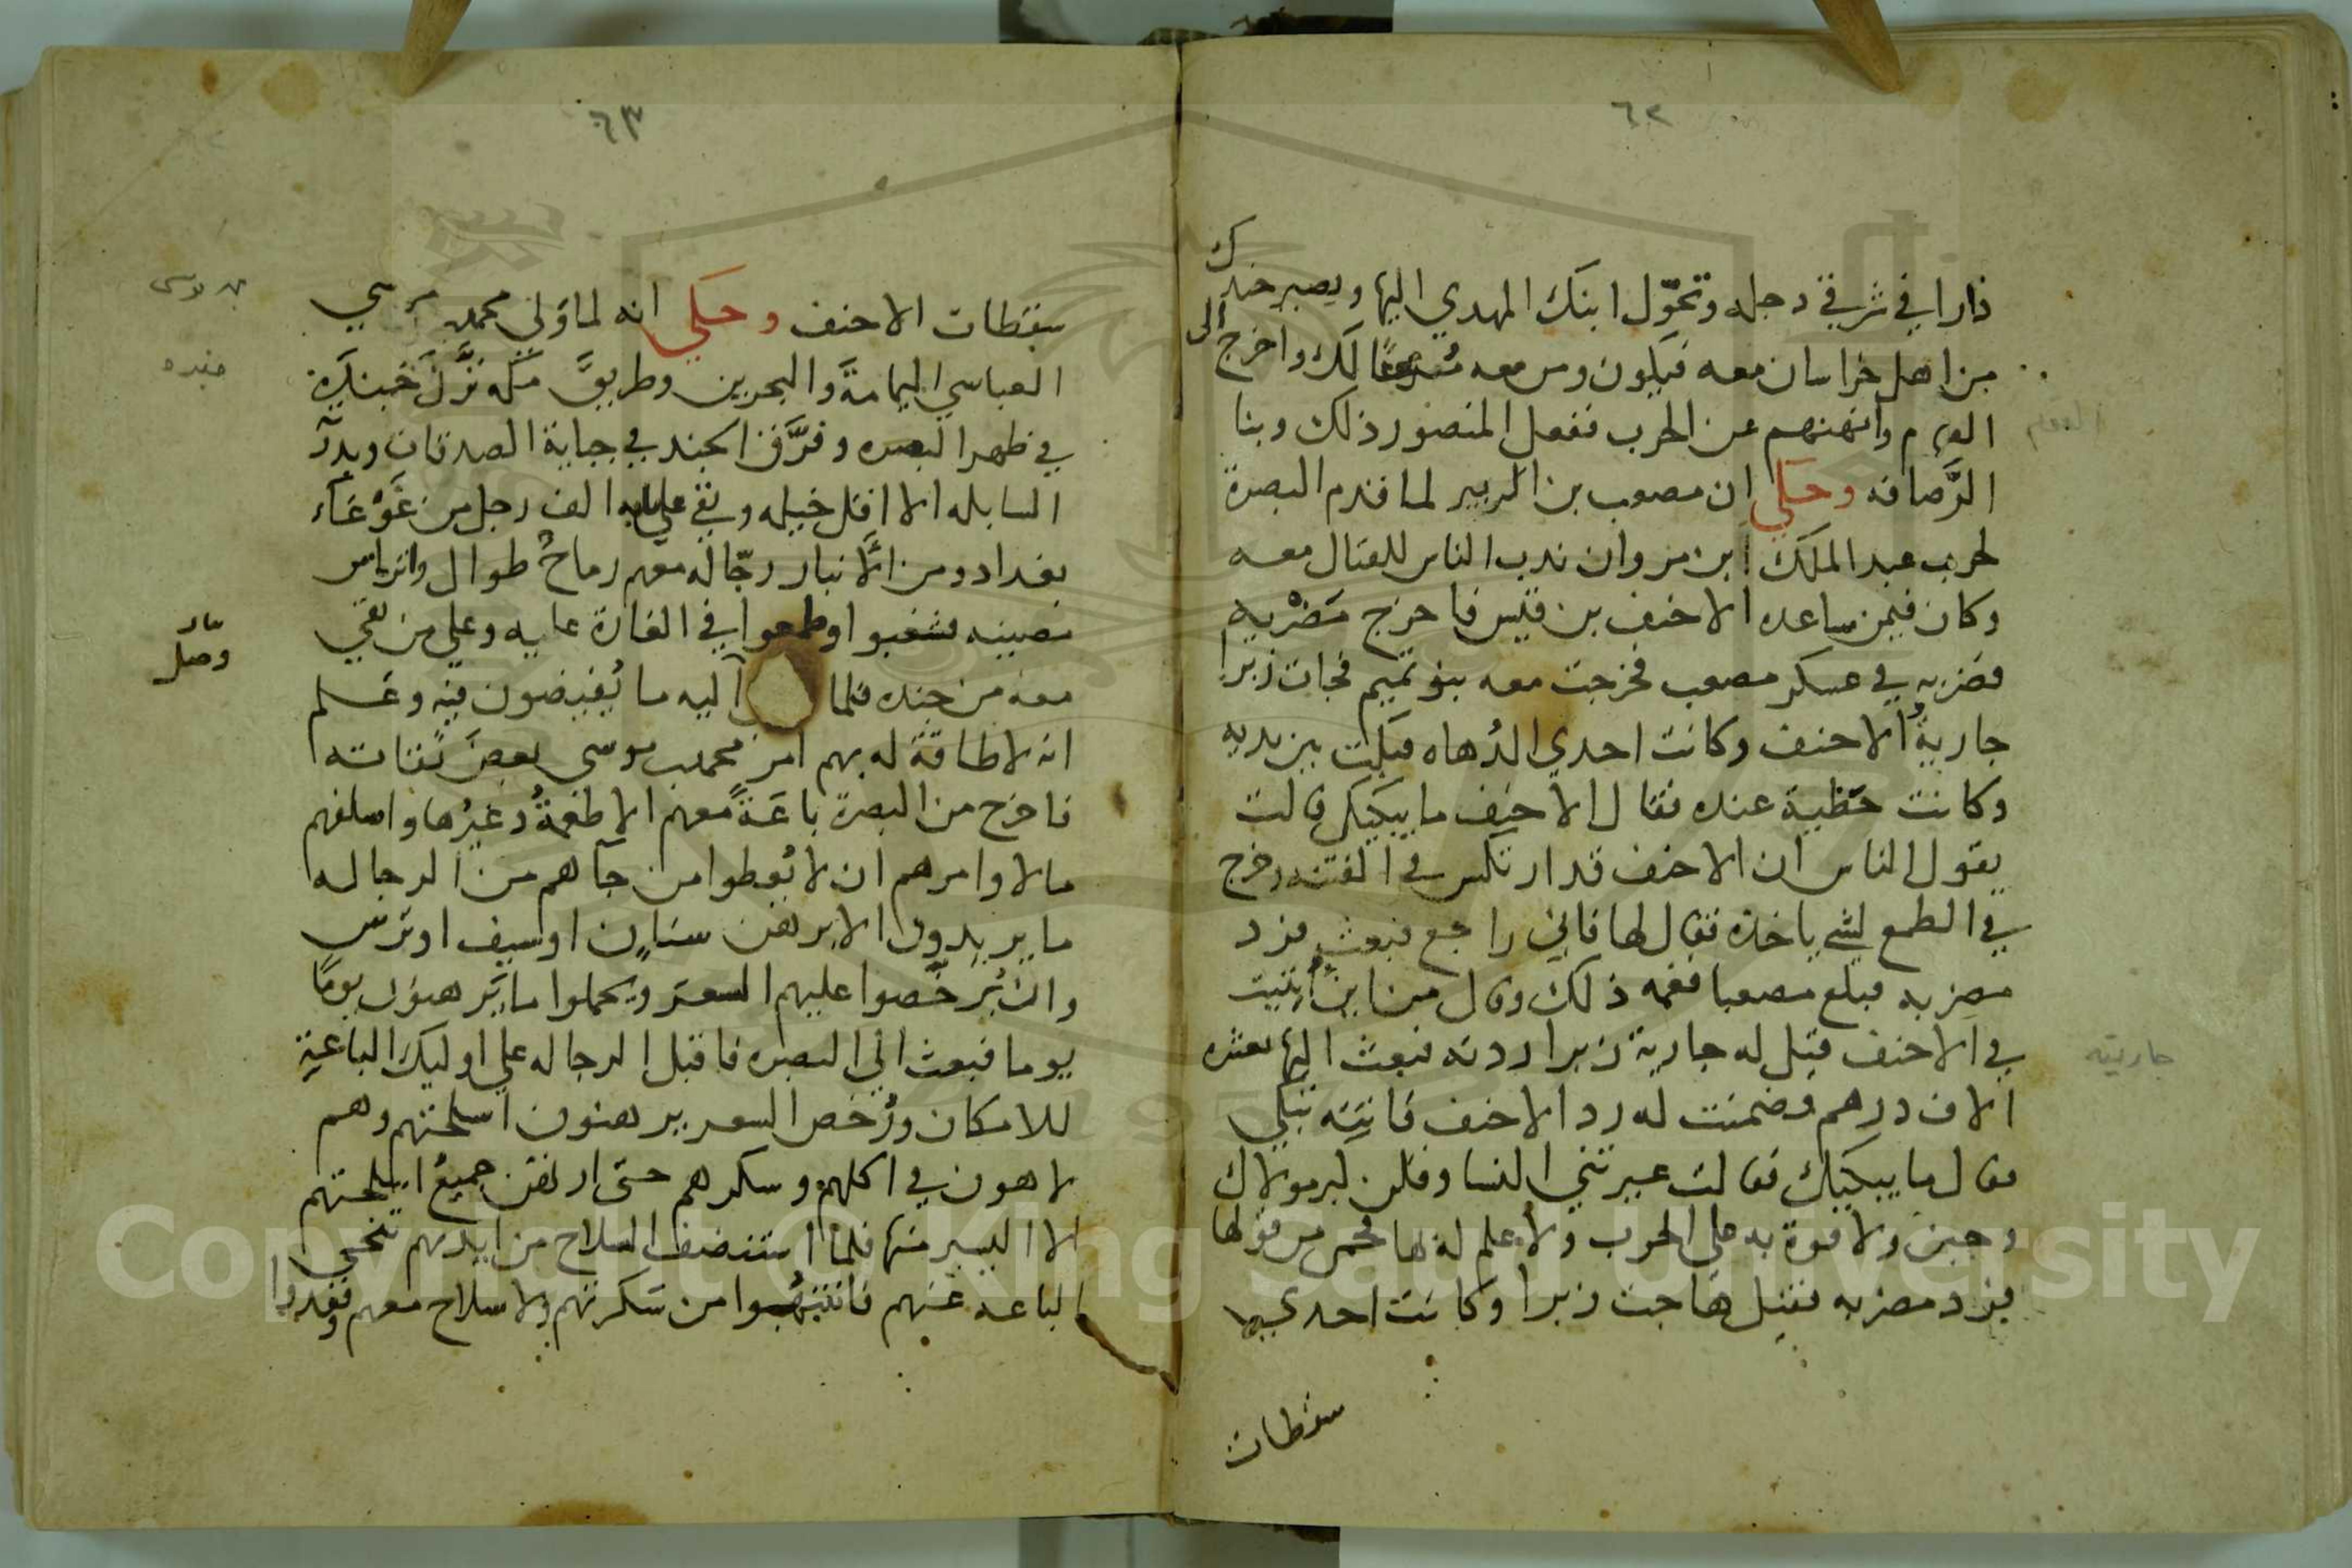 ٦٢
دارا في شرقي دجله وتحوّل ابنك المهدي اليها ويصير جندك
من اهل خراسان معه فيكون ومن معه لك واخرج الى
العوام وانههم عن الحرب ففعل المنصور ذلك وبنا
الرَّصافه وحكي ان مصعب بن الزبير لما قدم البصرة
لحرب عبد الملك ابن مروان ندب الناس للقتال معه
وكان فيمن ساعده الاحنف بن قيس فاخرج مضربه
فضربه في عسكر مصعب فخرجت معه بنو تميم فجات زبرا
جاريةُ الاحنف وكانت احدي الدُهاه فبكت بين يديه
وكانت حظية عنده فقال الاحنف ما يبكيك قالت
يقول الناس ان الاحنف قد ارتكس في الفتنه وخرج
في الطمع لشي ياخذه فقال لها فاني راجع فبعث فرد
مضربه فبلغ مصعبا فغمه ذلك وقال من اين اُتيت
في الاحنف قيل له جارية زبرا ردته فبعث اليها بعشره
الاف درهم فضمنت له رد الاحنف فاتته تبكي
فقال ما يبكيك فقالت عيرتني النسا وقلن كبر مولاك
وجبن ولا قوة به علي الحرب ولا علم له بها فحمي من قولها
فرد مضربه فقيل هاجت زبرا وكانت احدي
سقطات
العوام
جاريته
٦٣
سقطات الاحنف وحكي انه لما وَلي محمد بن موسي
العباسي اليمامةَ والبحرين وطريقَ مكه نزَّلَ
في ظهر البصره وفرَّق الجند في جباية الصدقات
السابله الا اقل خيله وبقي عليه الف رجل من غَوْغَآء
بغداد ومن الانبار رجّاله معهم رماحٌ طوال واتراس
فشغبوا وطمعوا في الغارة عليه وعلي من بقي
معه من جنده فلما اليه ما يُفيضون فيه وعلم
انه لا طاقة له بهم امر محمد بن موسي بعضَ ثقاته
فاخرج من البصرة باعَةً معهم الاطعمةُ وغيرُها واسلفهم
مالا وامرهم ان لا يُعطوا من جآهم من الرجاله
ما يريدون الا برهن سنان او سيف او ترس
وان يُرخّصوا عليهم السعر ويحملوا ما يَرهنون يومًا
يوما فبعث الي البصره فاقبل الرجاله علي اوليك الباعةِ
للامكان ورُخص السعر يرهنون اسلحتهم وهم
لاهون في اكلهم وسكرهم حتى ارتهن جميعُ اسلحتهم
الا اليسير منها فلما استنضف السلاح من ايديهم تنحي
الباعه عنهم فانتبهُوا من سكرتهم ولا سلاح معهم وفقدوا
بن موسى
جنده
وصل
Copyright © King Saud University